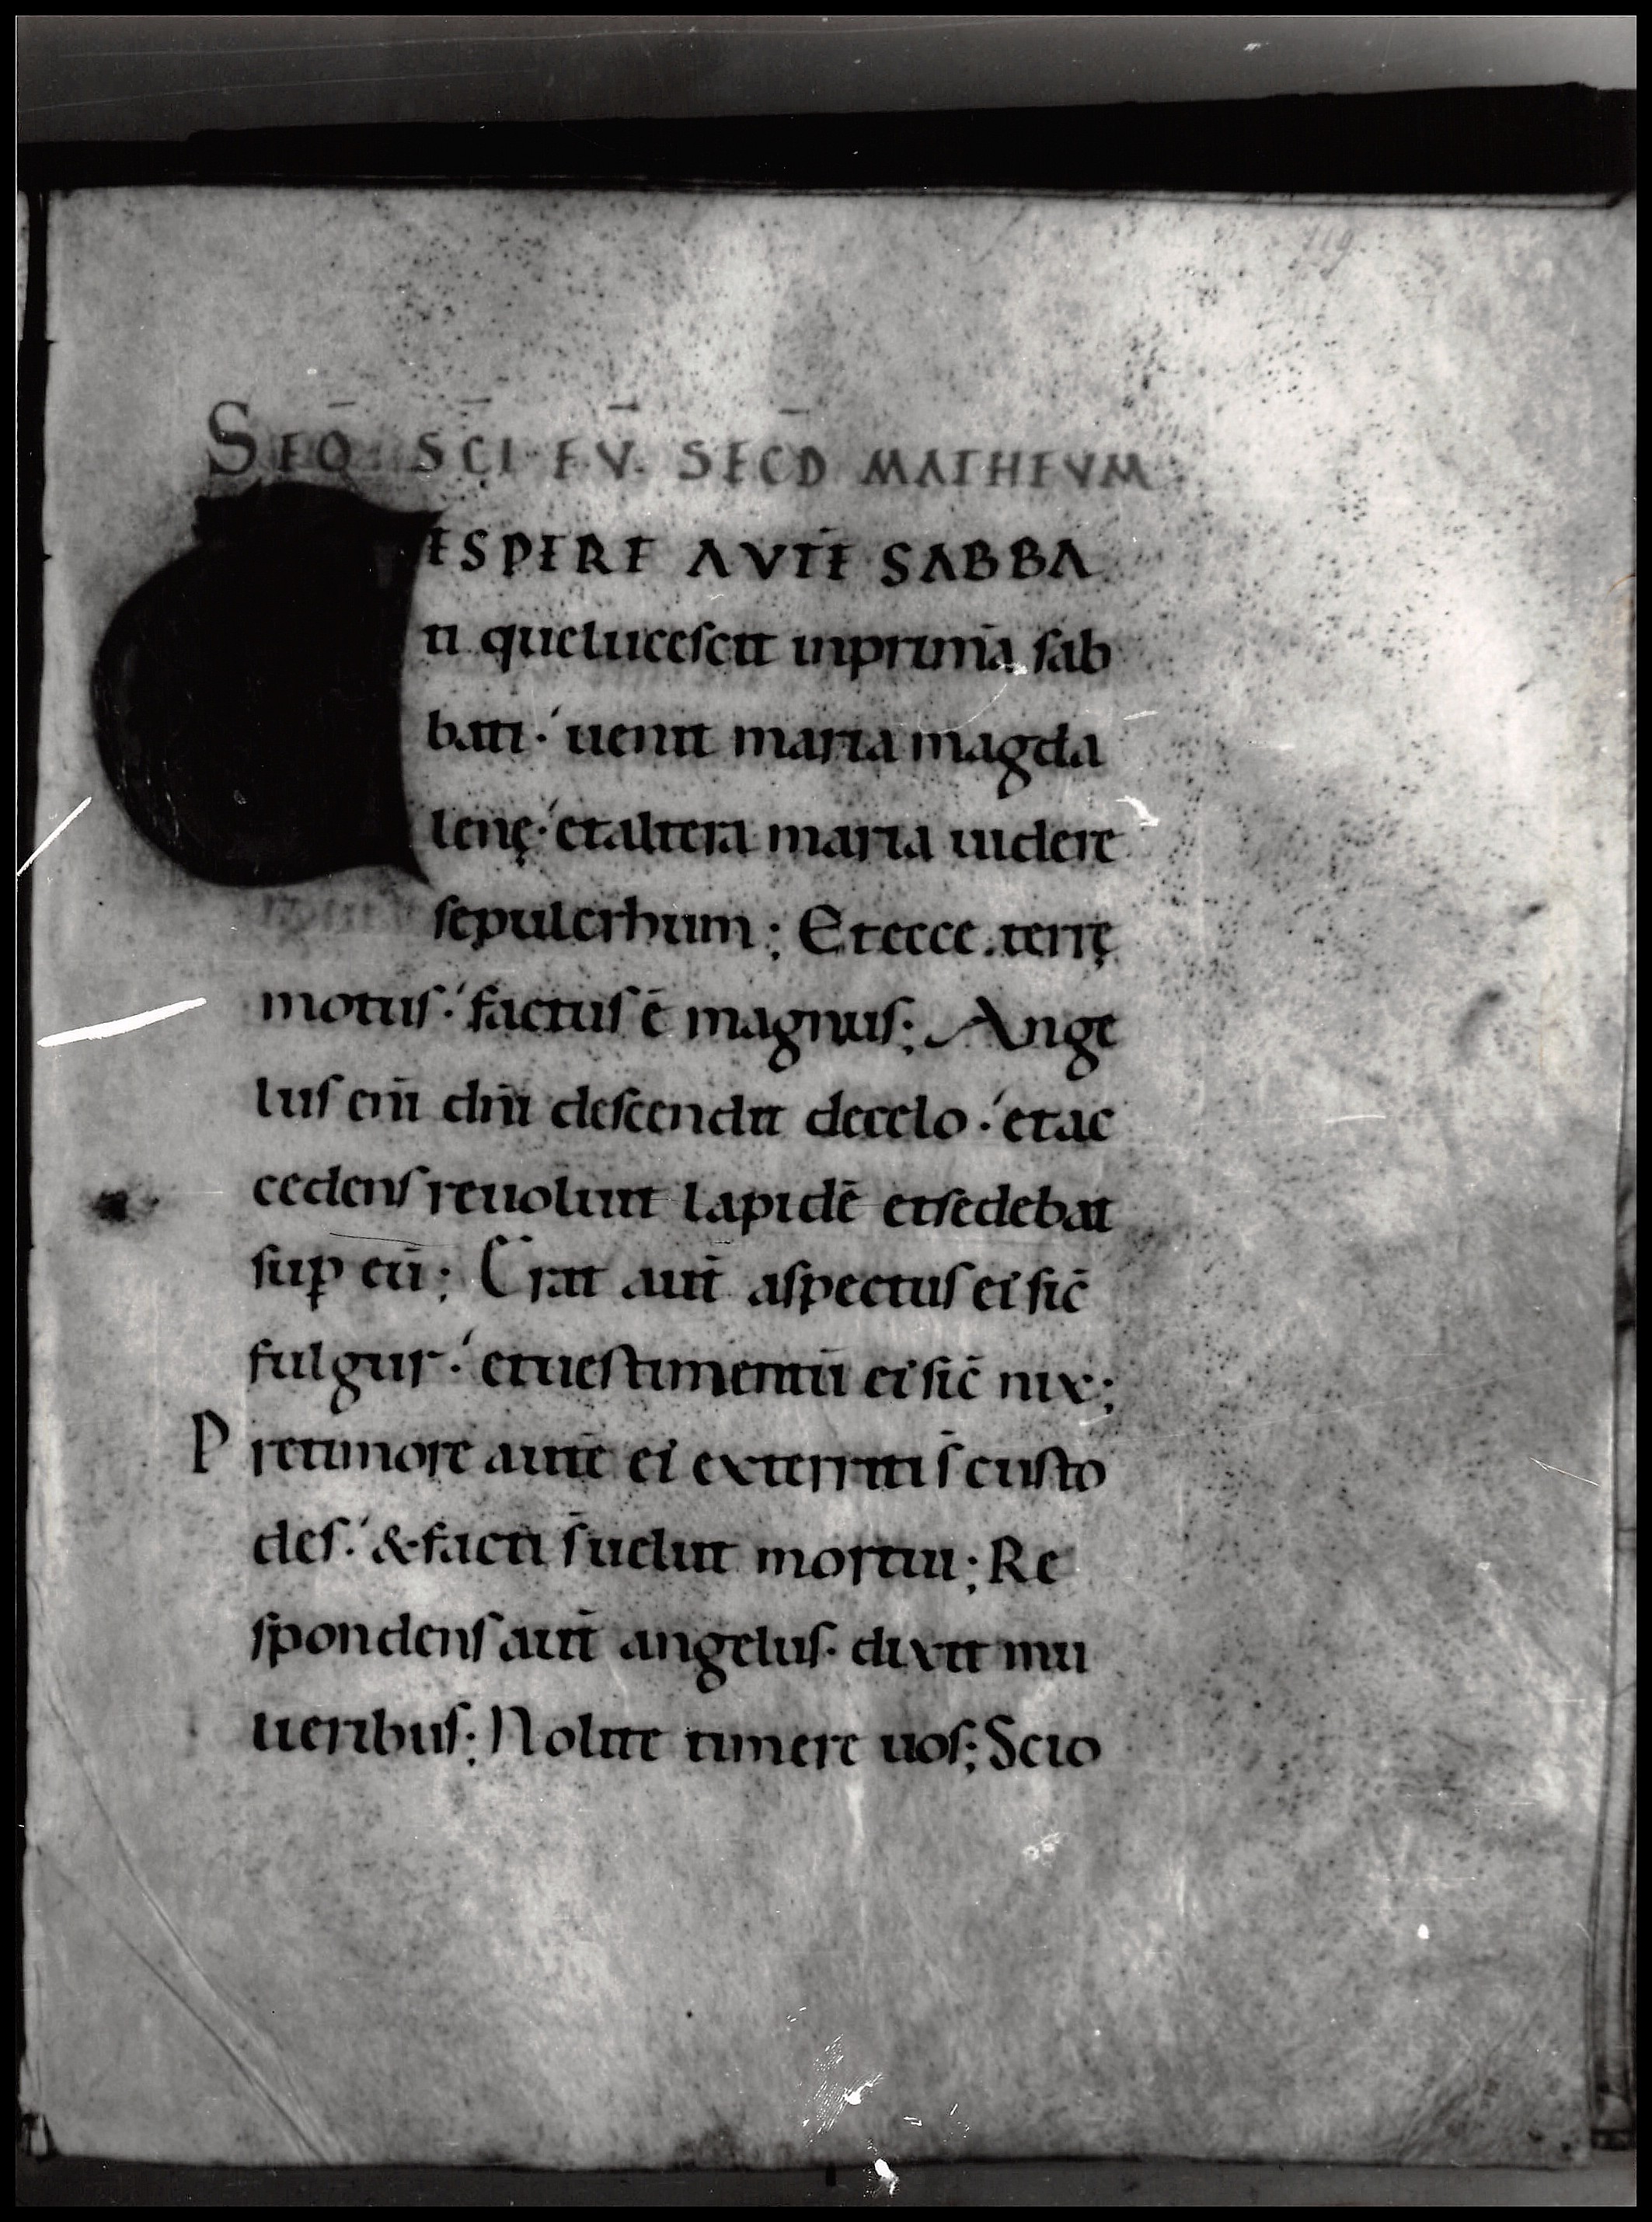 119
SEQ̄ SC̄I EV̄. SECD̄ MATHEVM.
ESPERE AVTĒ SABBA
ti quelucescit inprimā sab
bati· uenit maria magda
lenę· etaltera maria uidere
sepulcrhum; Etecce. terrę
motus· factus ē magnus; Ange
lus eni̅ dn̅i descendit decelo· etac
cedens reuoluit lapidē etsedebat
sup̱ eū; Erat aut̅ aspectus ei' sic̅
fulgur· etuestimentū ei' sic̅ nix;
Pretimore autē ei' exterriti s̅ custo
des· & facti s̅ uelut mortui; Re
spondens aut̅ angelus· dixit mu
lieribus; Nolite timere uos; Scio